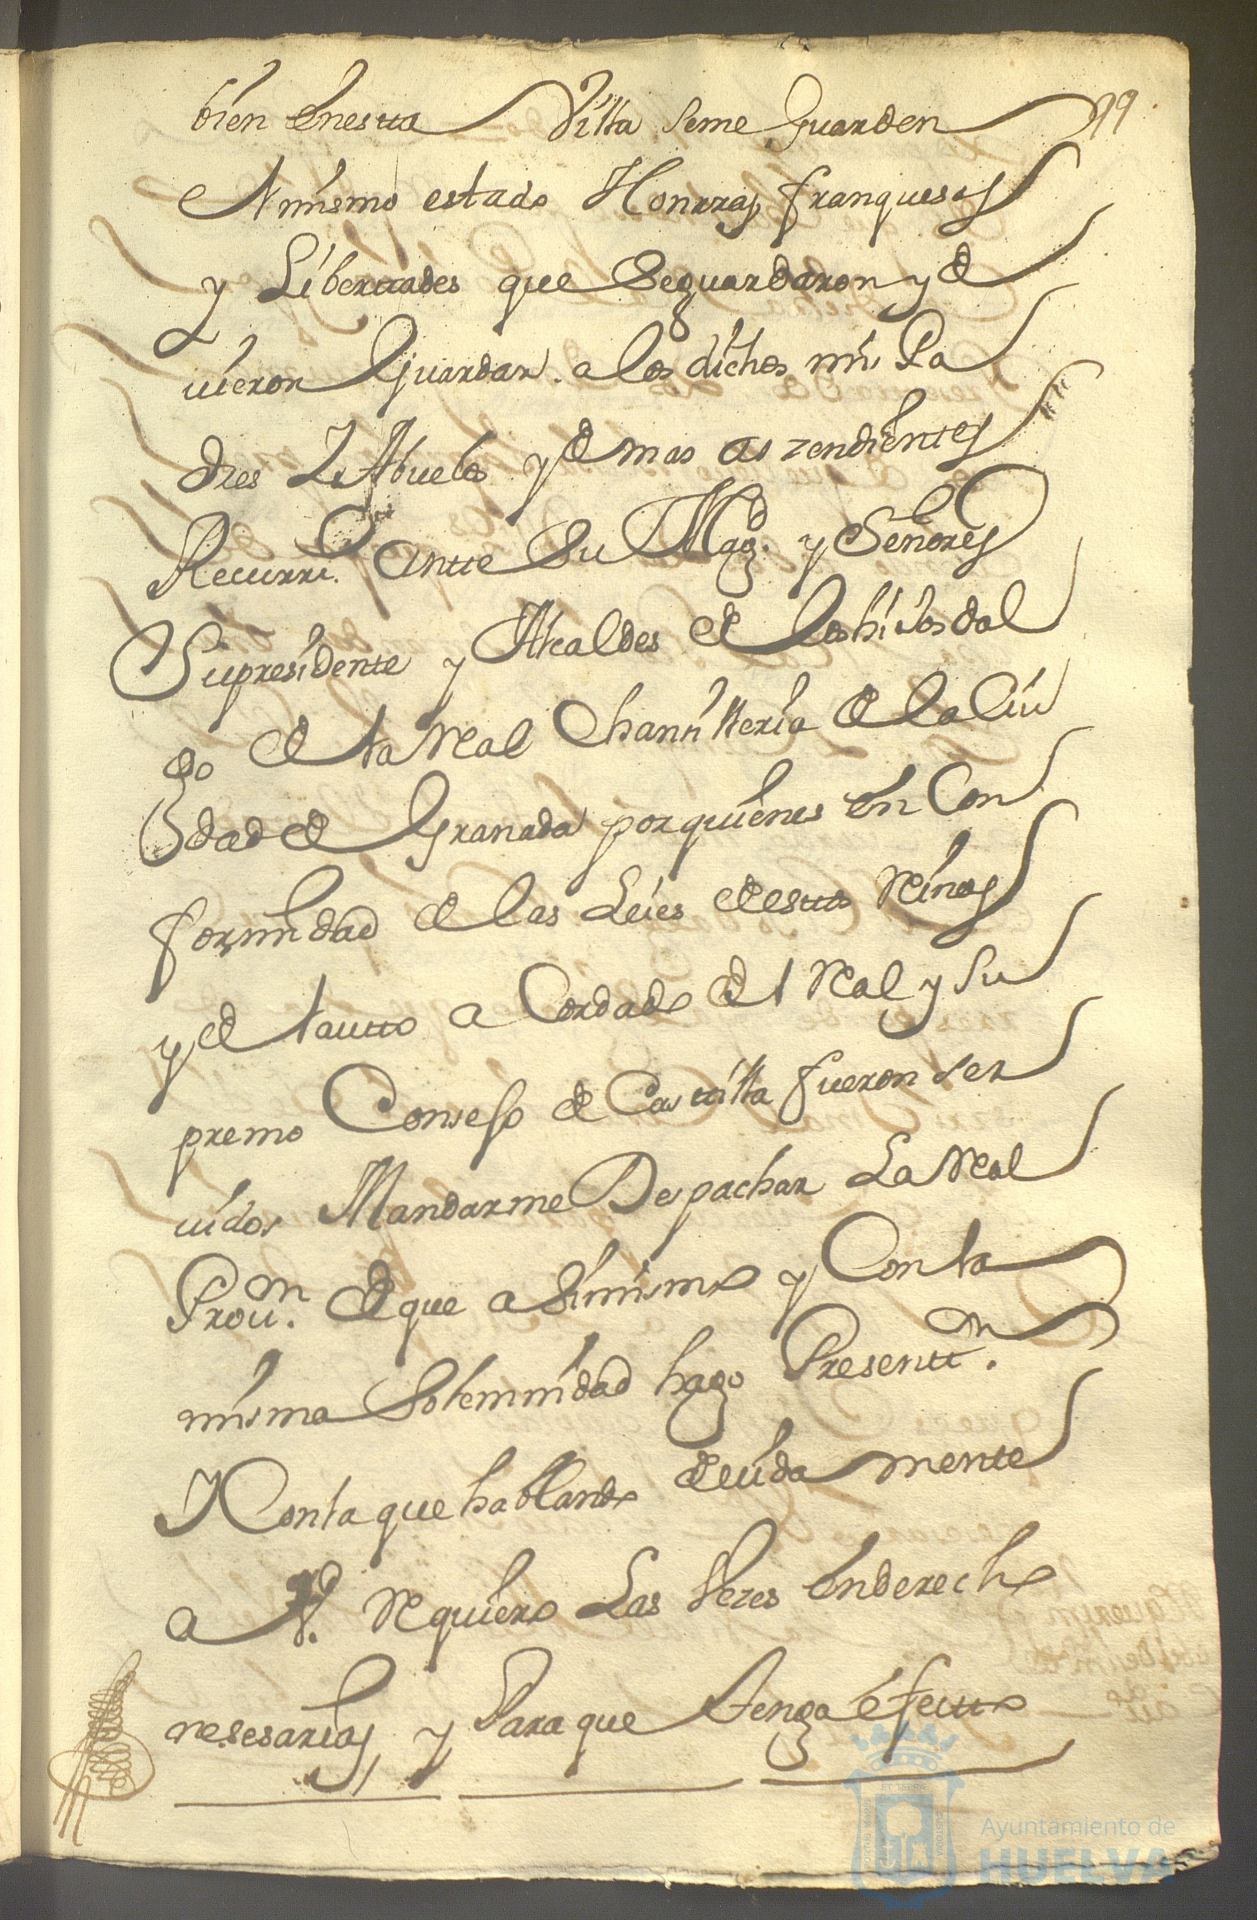 bien enesta Villa seme Guarden 99
El mismo estado Honrras franquesas
y Libertades que Seguardaron y de
vieron Guardar. a los dichos mis Pa
dres Y Abuelos y demas aszendientes
Recurri. ante Su Magd. y Señores
Supresidente y Alcaldes de los hijosdal
go de la Real Chansilleria de la Ciu
dad de Granada por quienes en Con
formidad de las Leies destos Reinos
y del autto a Cordado del Real y Su
premo Consejo de Castilla fueron ser
uidos Mandarme Despachar La Real
Prouon. de que asimismo y Con la
misma Solemnidad hago Presentton.
Y Con la que hablando deuida mente
a V. Requiero Las Vezes en derecho
nesesarias y Para que tenga efectto
Ayuntamiento de
HUELVA